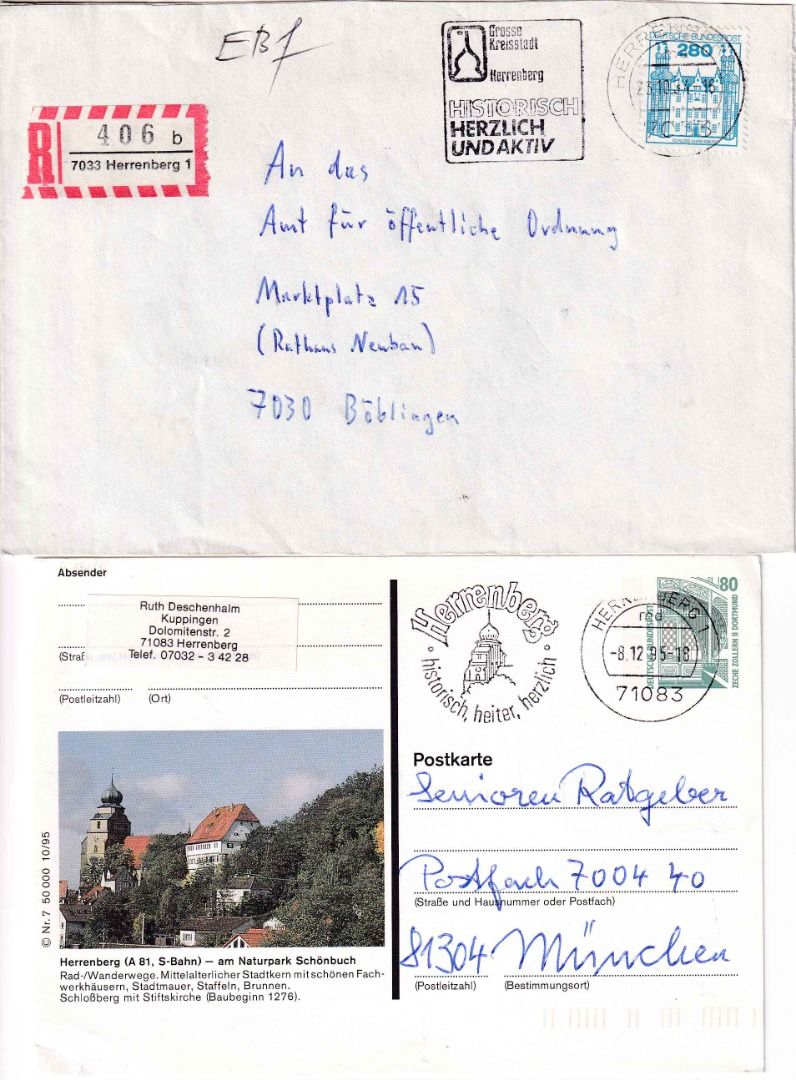 EBf
Grosse
Kreisstadt
Herrenberg
HISTORISCH
HERZLICH
UND AKTIV
DEUTSCHE BUNDESPOST
280
R
406 b
7033 Herrenberg 1
An das
Amt für öffentliche Ordnung
Marktplatz 15
(Rathaus Neubau)
7030 Böblingen
Absender
Ruth Deschenhalm
Kuppingen
Dolomitenstr. 2
71083 Herrenberg
Telef. 07032 - 3 42 28
(Postleitzahl) (Ort)
Herrenberg
· historisch, heiter, herzlich ·
HERRENBERG 1
-8.12.95-18
71083
80
DEUTSCHE BUNDESPOST
ZECHE ZOLLERN II DORTMUND
© Nr. 7 50 000 10/95
Herrenberg (A 81, S-Bahn) – am Naturpark Schönbuch
Rad-/Wanderwege. Mittelalterlicher Stadtkern mit schönen Fach-
werkhäusern, Stadtmauer, Staffeln, Brunnen.
Schloßberg mit Stiftskirche (Baubeginn 1276).
Postkarte
Senioren Ratgeber
Postfach 7004 40
(Straße und Hausnummer oder Postfach)
81304 München
(Postleitzahl) (Bestimmungsort)